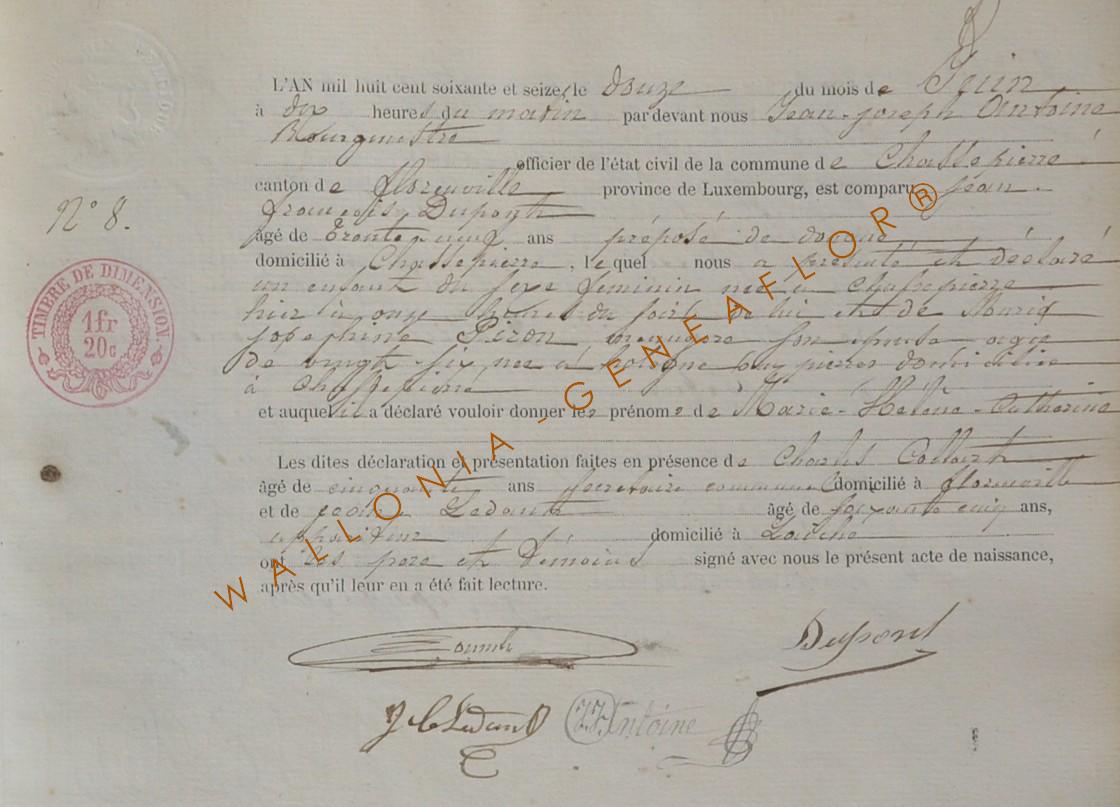 L'AN mil huit cent soixante et seize, le douze du mois de Juin
à dix heures du matin par devant nous Jean-joseph Antoine
Bourgmestre
officier de l'état civil de la commune de Chassepierre
canton de florenville province de Luxembourg, est comparu Jean
N° 8. françois Dupont
âgé de Trente neuf ans préposé de douane
domicilié à Chassepierre, lequel nous a présenté et déclaré
un enfant du sexe feminin née à chassepierre
hier à onze heures du soir de lui et de Marie
josephine Piron, menagere son epouse agee
de vingt six nee à aux pierres domiciliée
à chassepierre
et auquel il a déclaré vouloir donner les prénoms de Marie-Helene-Catherine
Les dites déclaration et présentation faites en présence de Charles
âgé de cinquante ans secretaire communal domicilié à florenville
et de âgé de soixante cinq ans,
domicilié à
ont les pere et témoins signé avec nous le présent acte de naissance,
après qu'il leur en a été fait lecture.
TIMBRE DE DIMENSION.
1fr
20c
WALLONIA - GENEAFLOR®
Dupont
JJ Antoine